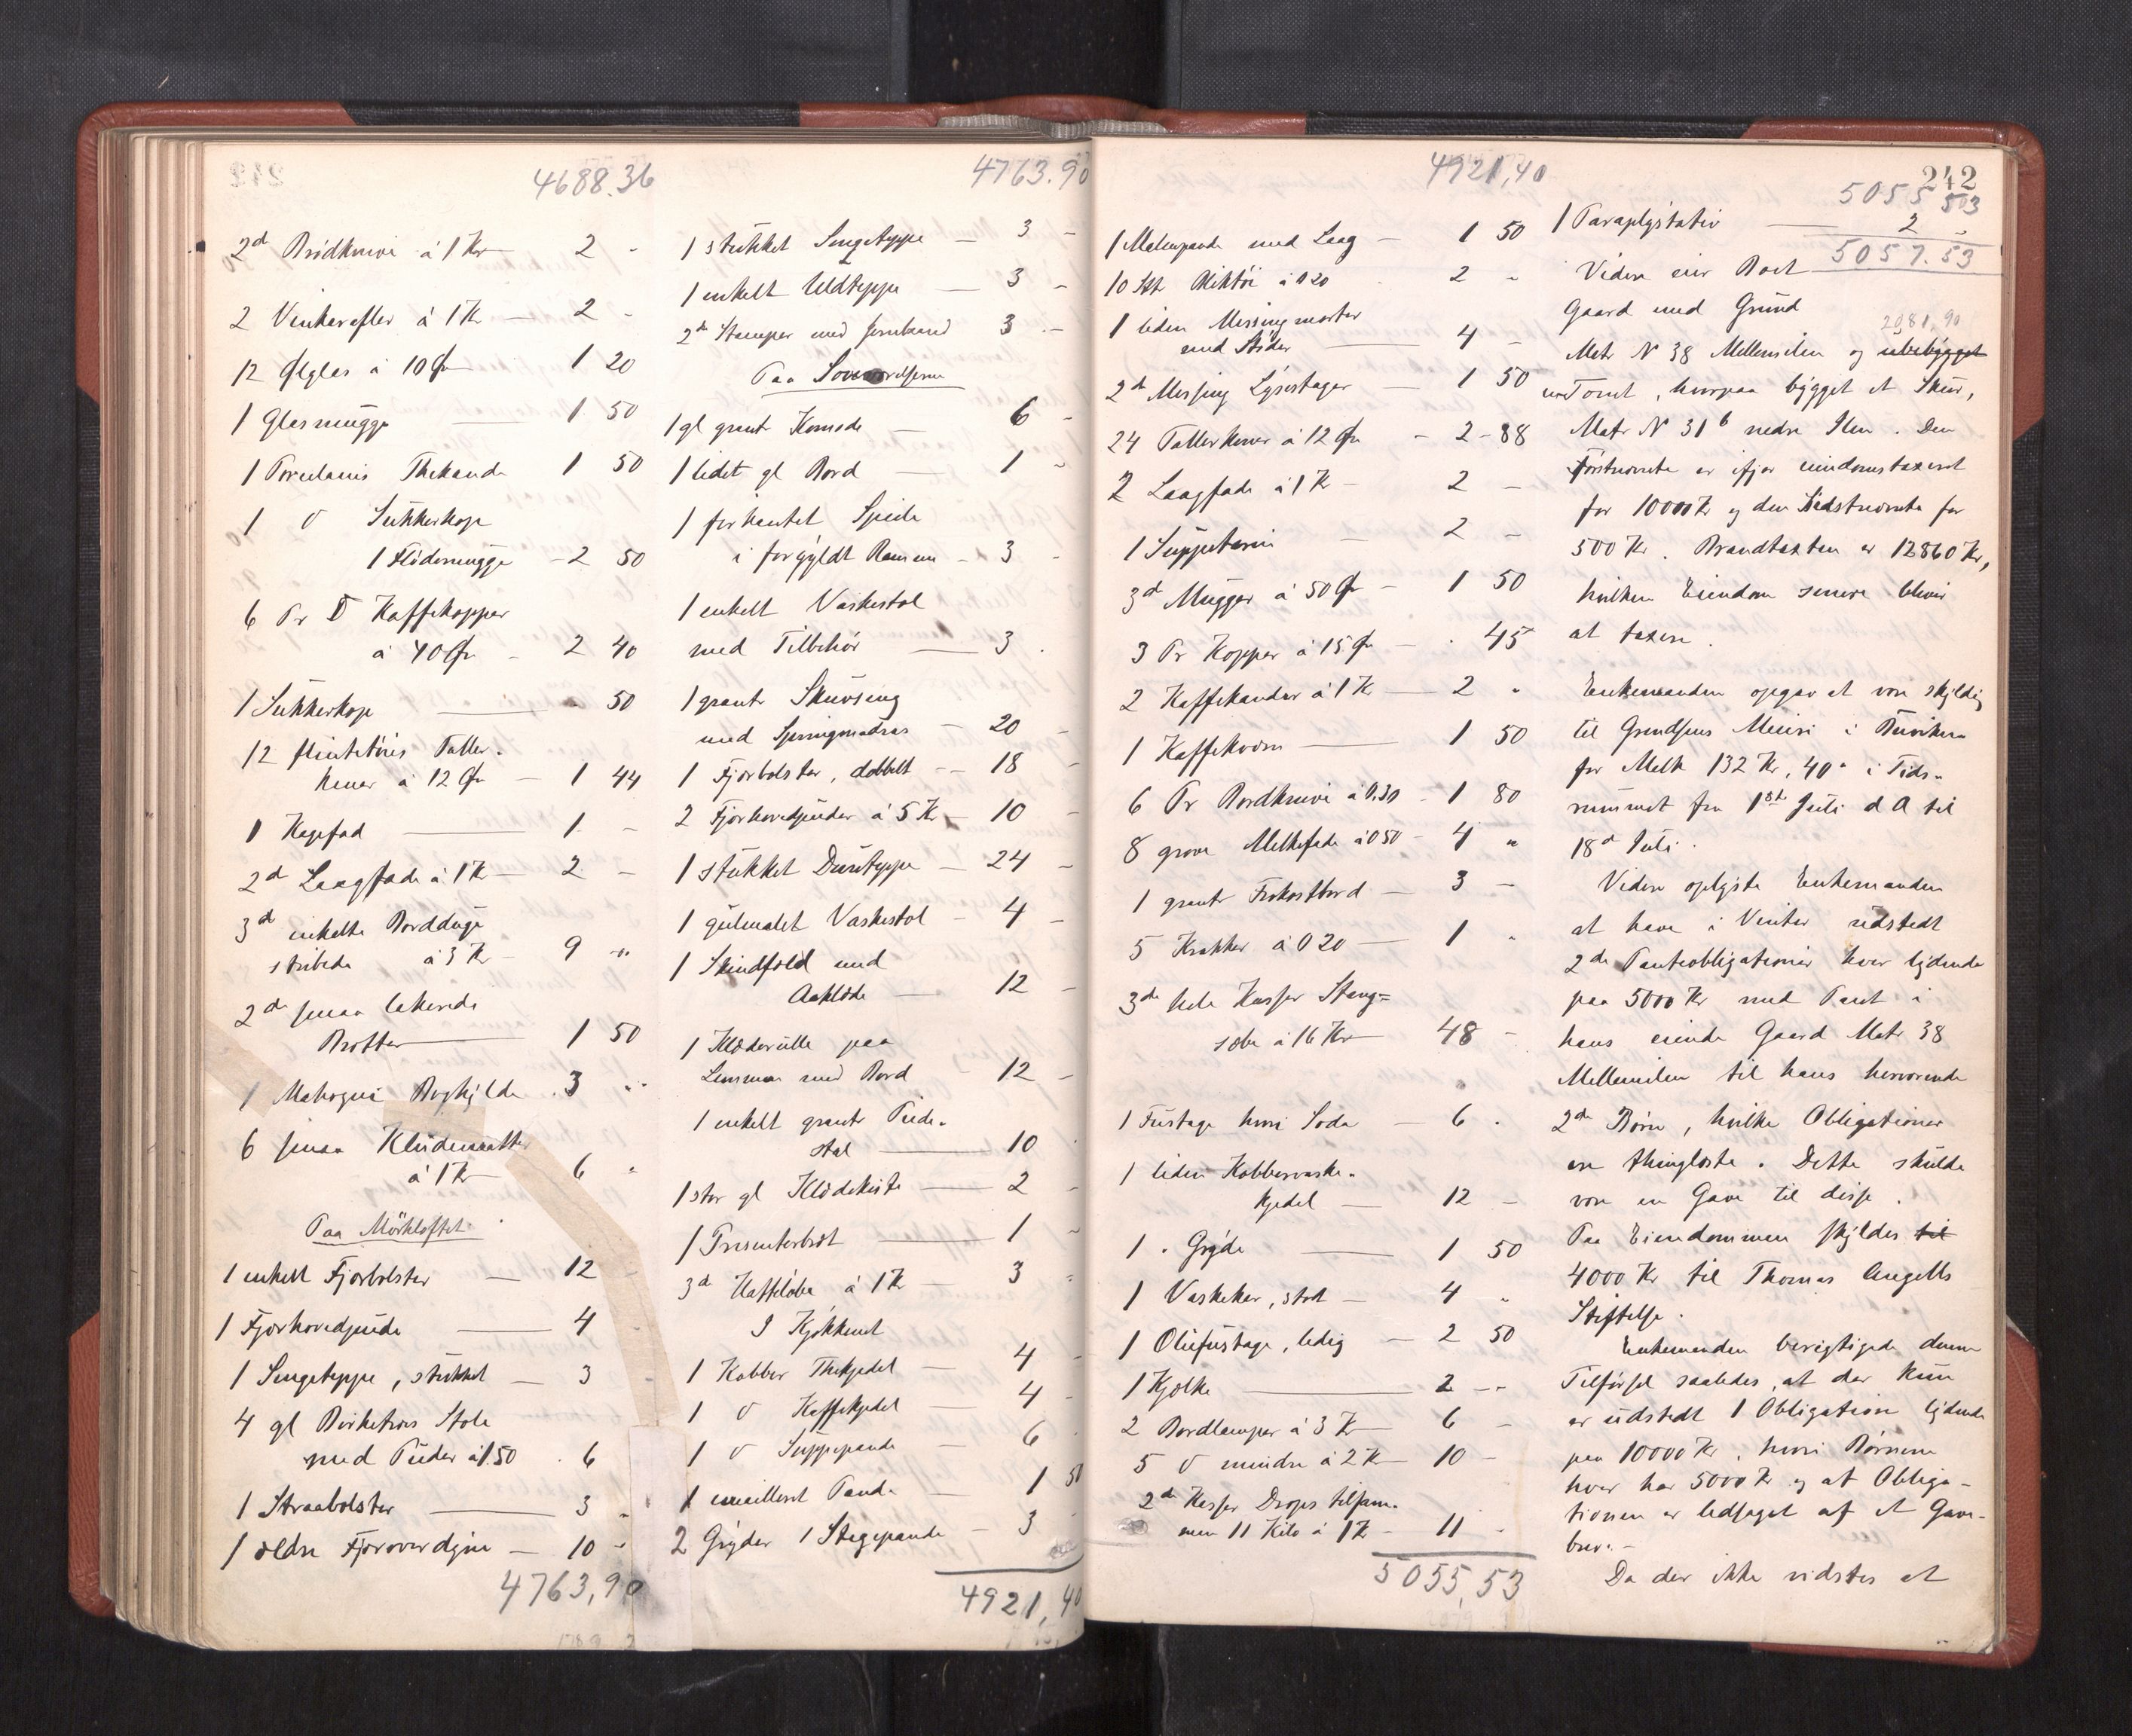 4688.36
2d Brödknive à 1 Kr 2 -
2 Vinkarafler à 1 Kr - 2 -
12 Ølglas à 10 Øre 1 20
1 Glasmugge 1 50
1 Porcelains Thekande 1 50
1 D Sukkerkop
1 Flödemugge - 2 50
6 Pr D Kaffekopper
à 40 Øre - 2 40
1 Sukkerkop - 50
12 flintetöies Taller-
kener à 12 Øre - 1 44
1 Kagefad 1 -
2d Laagfade à 1 Kr - 2 -
3d enkelte Bordduge
stribede à 3 Kr - 9 -
2d smaa lakerede
Bretter 1 50
1 Mahogni Boghylde 3 -
6 smaa Kludematter
à 1 Kr 6 -
Paa Mörkloftet
1 enkelt Fjærbolster - 12 -
1 Fjærhovedpude 4 -
1 Sengeteppe, stukket - 3 -
4 gl Birketræs Stole
med Puder à 1.50 6
1 Straabolster 3 -
1 ældre Fjæroverdyne - 10 -
4763,90
4763.90
1 stukket Sengeteppe - 3 -
1 enkelt Uldteppe - 3 -
2d Stamper med Jernbaand 3 -
Paa Soveværelserne
1 gl grant Komode - 6 -
1 lidet gl Bord 1 -
1 forhantet Speile
i forgyldt Ramme - 3 -
1 enkelt Vaskestol
med Tilbehör 3 -
1 grant Skuvseng
med Springmadras - 20 -
1 Fjærbolster, dobbelt - 18 -
2 Fjærhovedpuder à 5 Kr - 10 -
1 stukket Dunteppe - 24 -
1 gulmalet Vaskestol - 4 -
1 Skindfeld med
Aaklæde - 12 -
1 Klæderulle paa
Lemmen med Bord 12 -
1 enkelt grant Pide-
stal 10 -
1 stor gl Klædekiste - 2 -
1 Presenterbret - 1 -
3d Kaffelöbe à 1 Kr - 3 -
I Kjökkenet
1 Kobber Thekjedel - 4 -
1 D Kaffekjedel - 4 -
1 D Suppepande - 6
1 emailleret Pande - 1 50
2 Gryder 1 Stegepande - 3
4921,40
4921,40
1 Malmpande med Laag - 1 50
10 Stk Bliktöi à 0 20 2 -
1 liden Messingmorter
med Stöder 4 -
2d Messing Lysestager - 1 50
24 Tallerkener à 12 Øre - 2 - 88
2 Laagfade à 1 Kr - 2 -
1 Suppeterrin - 2 -
3d Mugger à 50 Øre - 1 50
3 Pr Kopper à 15 Øre - . 45
2 Kaffekander à 1 Kr - 2 -
1 Kaffekværn 1 50
6 Pr Bordknive à 0.30 - 1 80
8 grove Melkefade à 0 50 - 4 -
1 grant Frokostbord - 3 -
5 Krakker à 0 20 - 1 -
3de hele Kasser Stang=
sæbe à 16 Kr 48 -
1 Fustage hvori Soda - 6 -
1 liden Kobbervaske-
kjedel - 12 -
1 " Gryde 1 50
1 Vaskekar, stort - 4 -
1 Oliefustage, ledig - 2 50
1 Kjælke 2 -
2 Bordlamper à 3 Kr 6 -
5 D mindre à 2 Kr 10 -
2d Kasser Drops tilsam-
men 11 Kilo à 1 Kr - 11 -
5055,53
242
5055 53
1 Paraplystativ 2 -
5057.53
Videre eier Boet
Gaard med Grund
2081,90
Matr N 38 Mellemilen og ubebygget
en Tomt, hvorpaa bygget et Skur,
Matr N 31b nedre Ilen. Den
Förstnævnte er ifjor eiendomstaxeret
for 10000 Kr og den Sidstnævnte for
500 Kr. Brandtaxten er 12860 Kr,
hvilken Eiendom senere bliver
at taxere.
Enkemanden opgav at være skyldig
til Grendsens Meieri i Buviken
for Melk 132 Kr, 40 " i Tids-
rummet fra 1st Juli d A til
18d Juli.
Videre oplyste Enkemanden
at have i Vinter udstedt
2de Panteobligationer hver lydende
paa 5000 Kr med Pant i
hans eiende Gaard Matr 38
Mellemilen til hans herværende
2de Börn, hvilke Obligationer
ere thinglæste. Dette skulde
være en Gave til disse.
Paa Eiendommen skyldes til
4000 Kr til Thomas Angells
Stiftelse.
Enkemanden berigtigede denne
Tilförsel saaledes, at der kun
er udstedt 1 Obligation lydende
paa 10000 Kr, hvori Börnene
hver har 5000 Kr og at Obliga-
tionen er ledsaget af et Gave-
brev. -
Da der ikke vidstes at